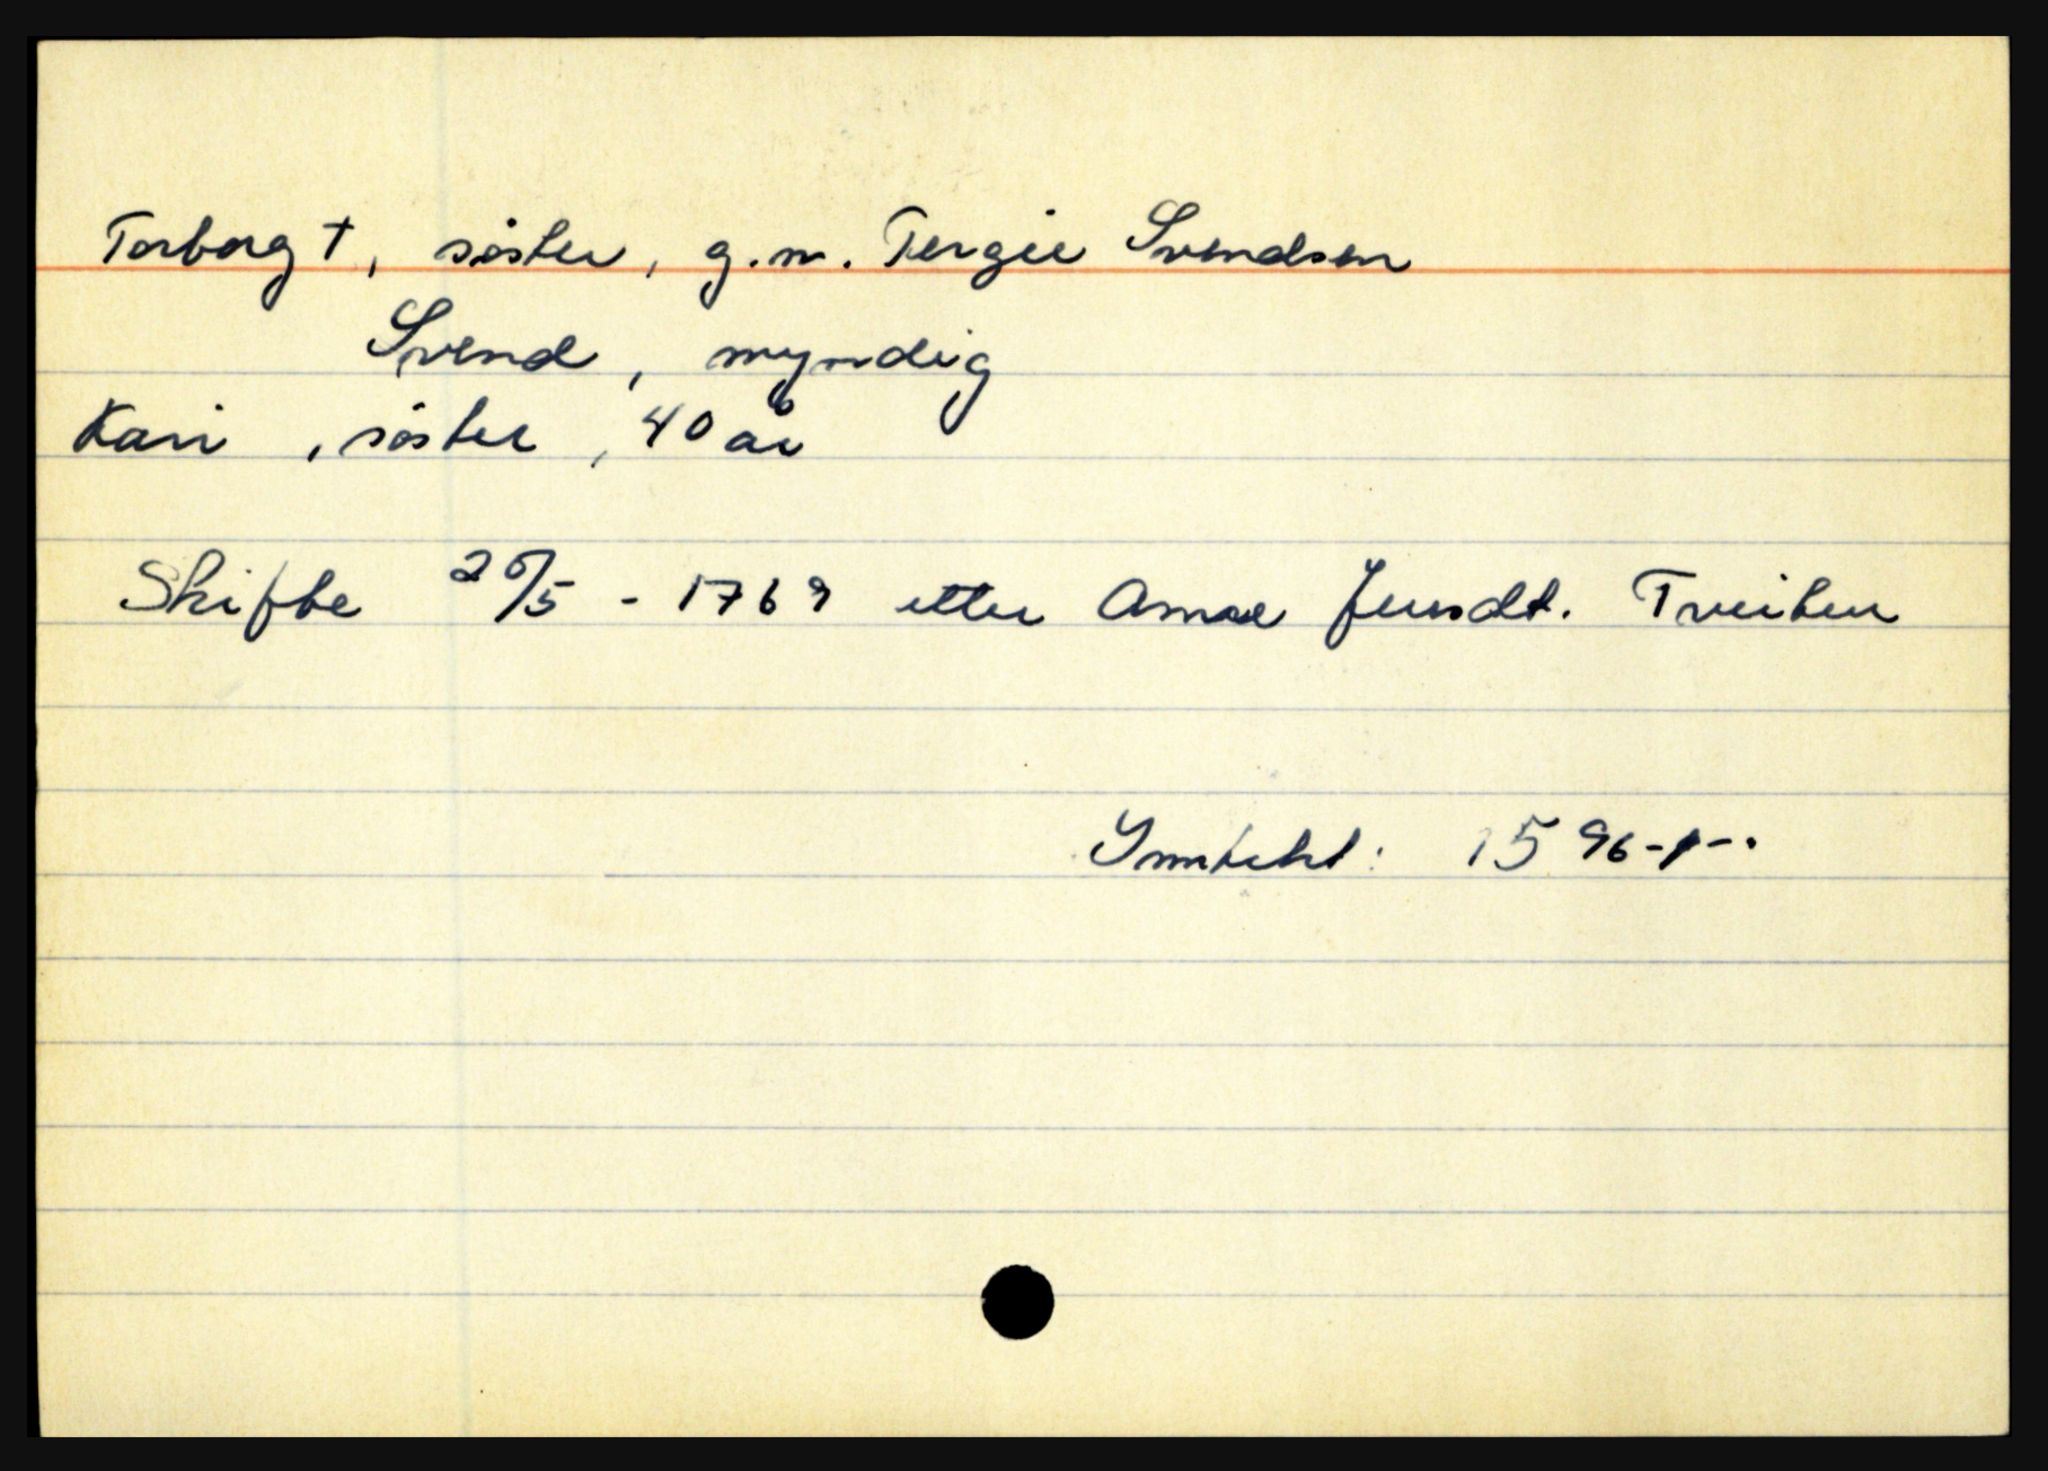 Torborg †, søster, g.m. Tergie Svendsen
Svend, myndig
Kari, søster, 40 år
Skifte 20/5 - 1769 etter Anne Jensdt. Tveiten
Inntekt: 1596-1-.